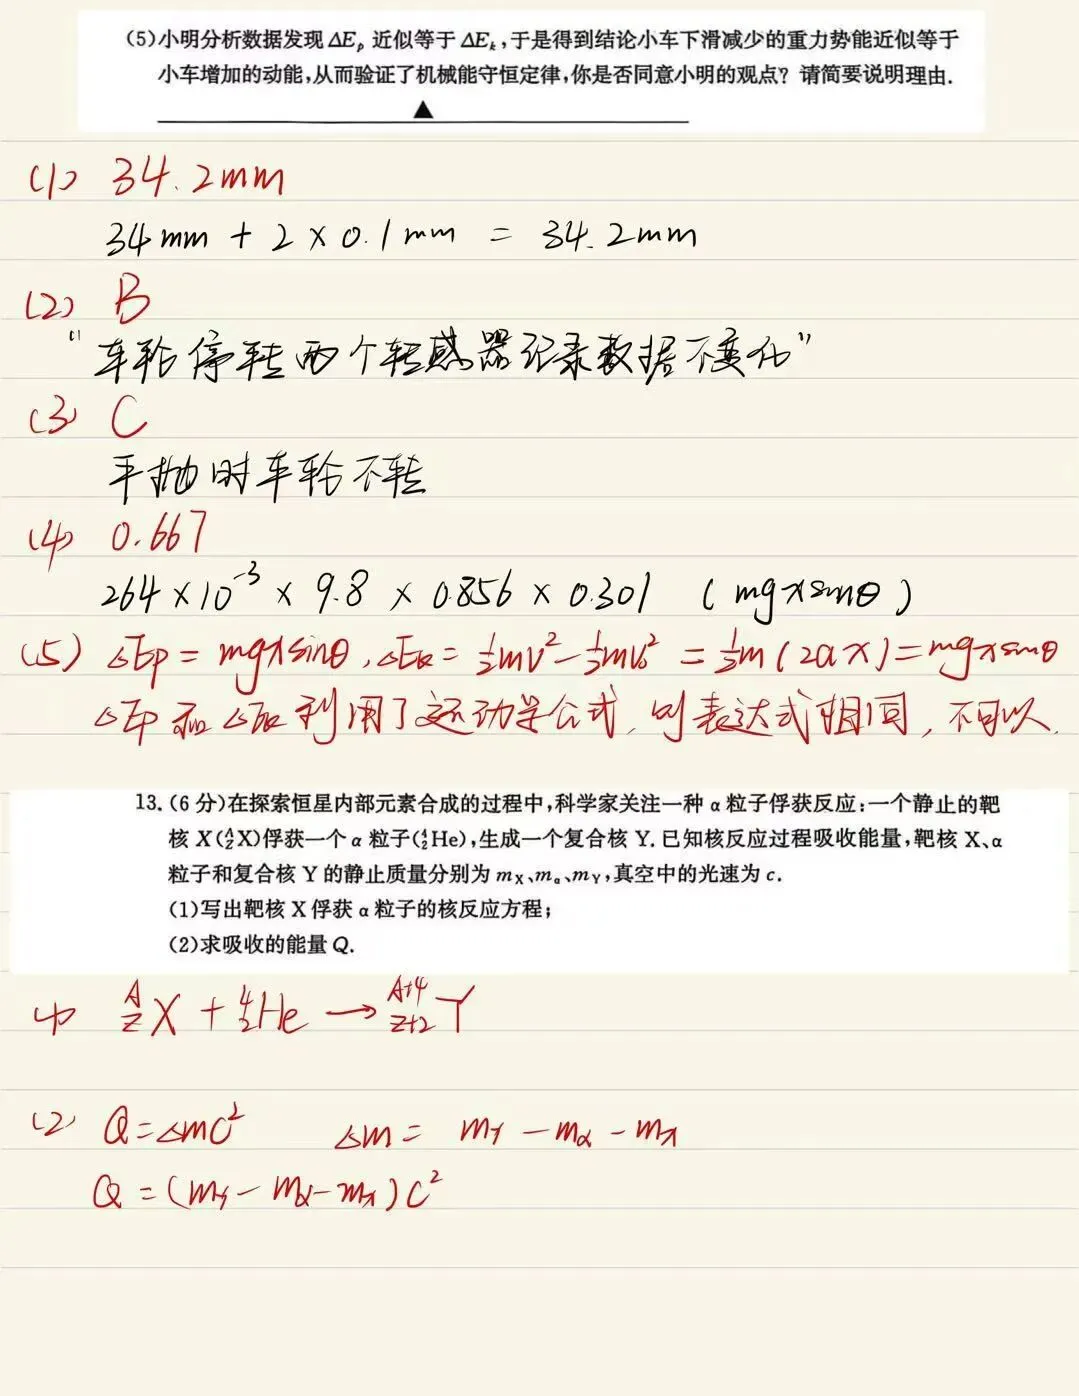 (5)小明分析数据发现 ΔEₚ 近似等于 ΔEₖ,于是得到结论小车下滑减少的重力势能近似等于
小车增加的动能,从而验证了机械能守恒定律,你是否同意小明的观点? 请简要说明理由.
▲
(1) 34.2mm
34mm + 2 × 0.1mm = 34.2mm
(2) B
“车轮停转两个转感器记录数据不变化”
(3) C
平抛时车轮不转
(4) 0.667
264×10⁻³ × 9.8 × 0.856 × 0.301 (mgxsinθ)
(5) ΔEp = mgxsinθ, ΔEk = ½mv² - ½mv₀² = ½m(2ax) = mgxsinθ
ΔEp和ΔEk利用了运动学公式, 则表达式相同, 不可以.
13.(6 分)在探索恒星内部元素合成的过程中,科学家关注一种 α 粒子俘获反应:一个静止的靶
核 X(ᴬ_Z X)俘获一个 α 粒子(⁴₂He),生成一个复合核 Y. 已知核反应过程吸收能量,靶核 X、α
粒子和复合核 Y 的静止质量分别为 m_X、m_α、m_Y,真空中的光速为 c.
(1)写出靶核 X 俘获 α 粒子的核反应方程;
(2)求吸收的能量 Q.
(1) ᴬ_Z X + ⁴₂He → ᴬ⁺⁴_Z+2 Y
(2) Q = Δmc² Δm = m_Y - m_α - m_x
Q = (m_Y - m_α - m_x)c²